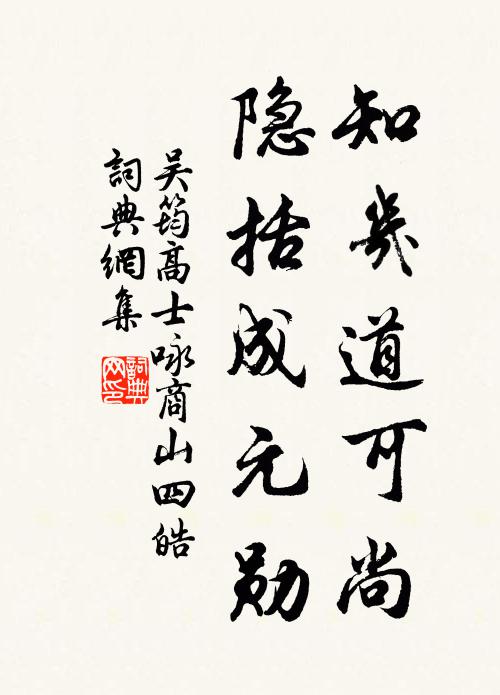 知幾道可尚
隐括成元勋
吴筠高士咏商山四皓
詞典網集
詞典网印